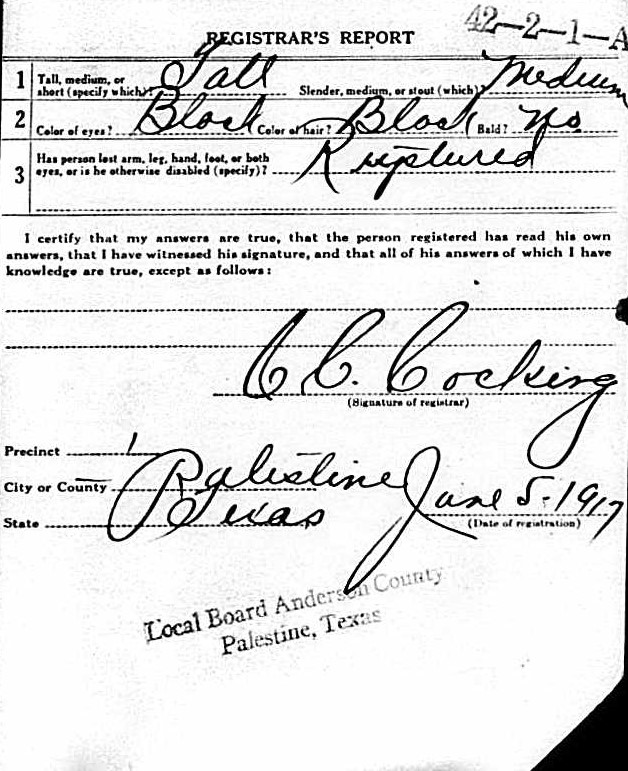 42-2-1-A
REGISTRAR'S REPORT
1 Tall, medium, or short (specify which)? Tall Slender, medium, or stout (which)? Medium
2 Color of eyes? Black Color of hair? Black Bald? No
3 Has person lost arm, leg, hand, foot, or both
eyes, or is he otherwise disabled (specify)? Ruptured
I certify that my answers are true, that the person registered has read his own
answers, that I have witnessed his signature, and that all of his answers of which I have
knowledge are true, except as follows:
C. Cocking
(Signature of registrar)
Precinct 1
City or County Palestine June 5-1917
State Texas (Date of registration)
Local Board Anderson County
Palestine, Texas